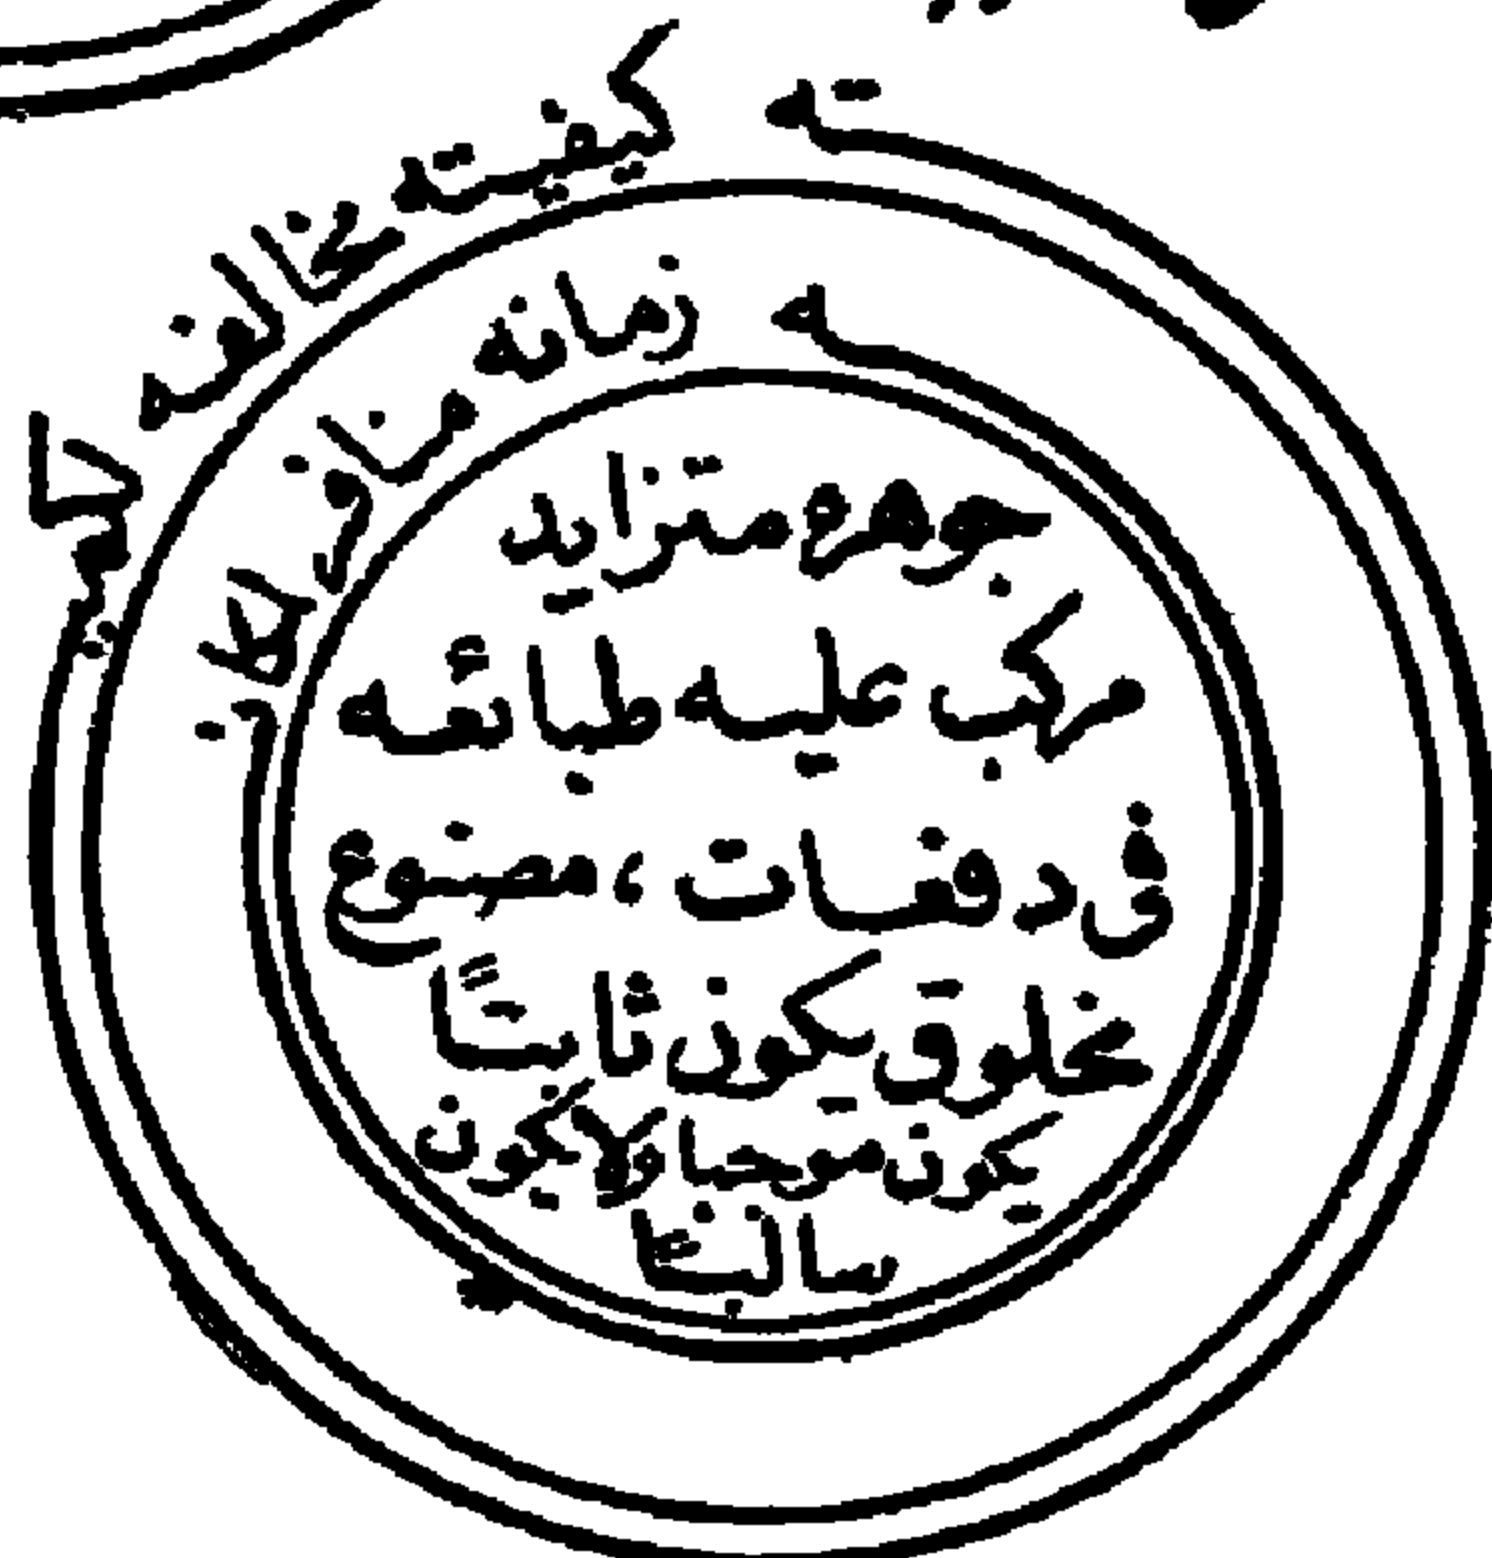 كيفيته مخالفه لكميته
زمانه مناف لمكانه
جوهره متزايد
مركب عليه طبائعه
فى دفعات ، مصنوع
مخلوق يكون ثابتًا
يكون موجبا ولا يكون
سالبًا